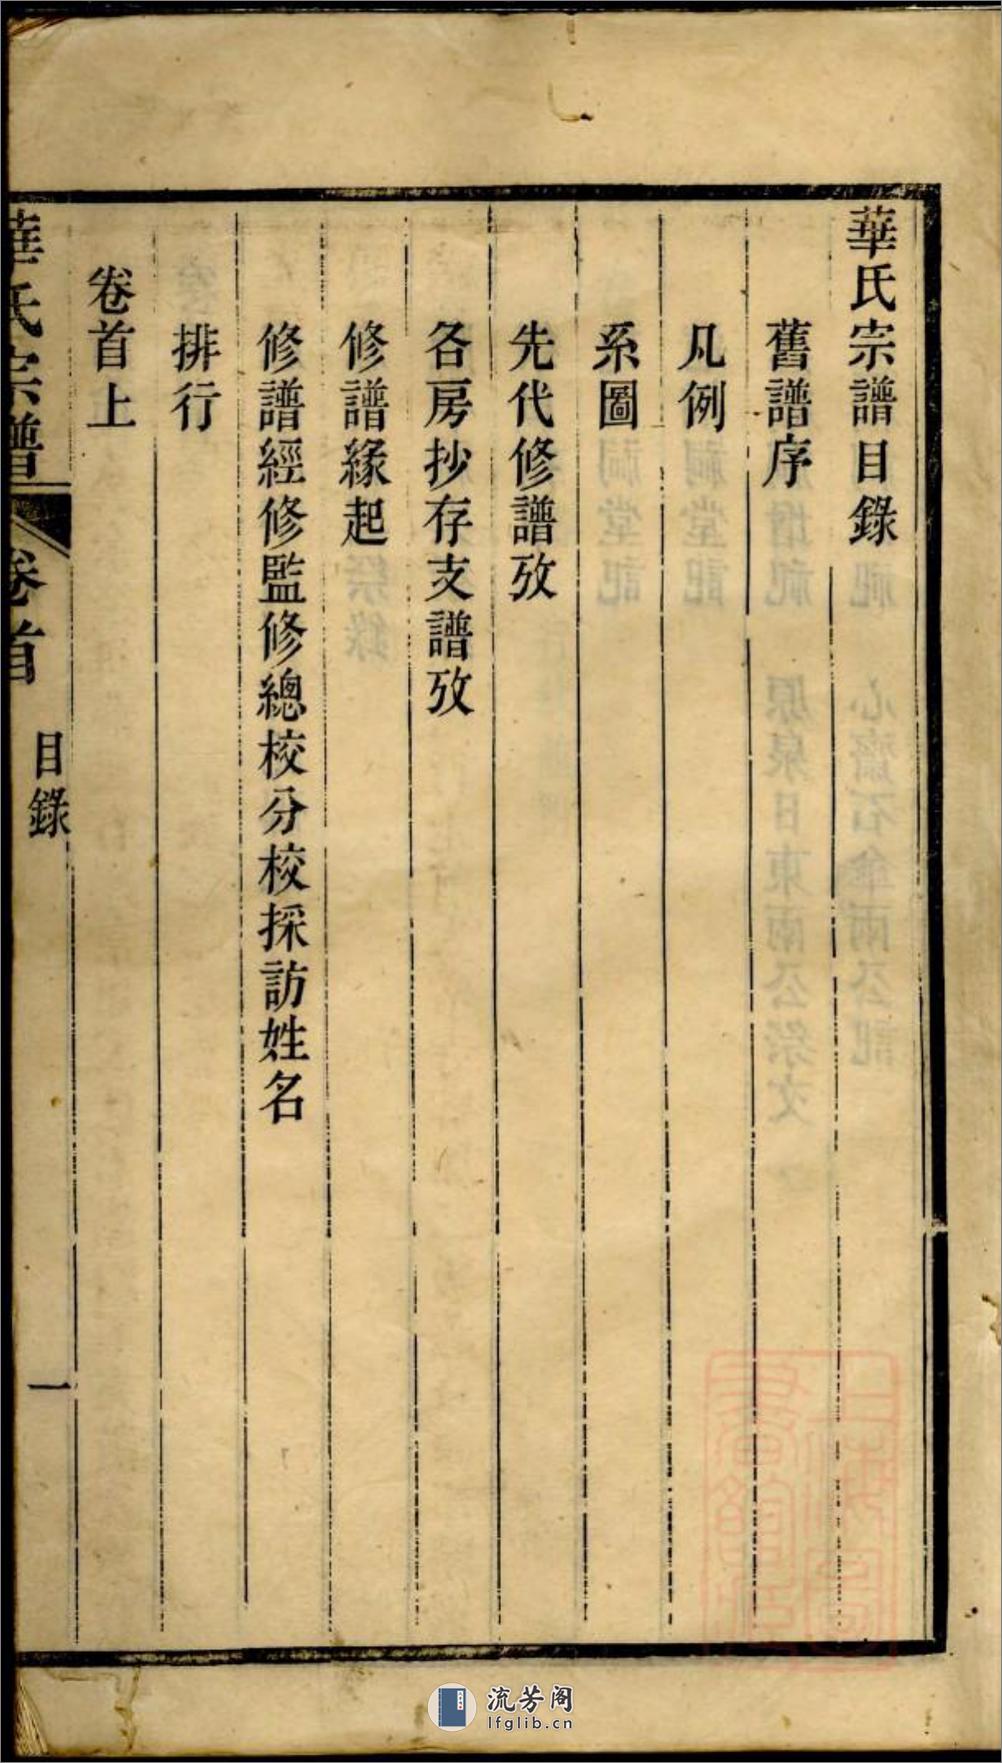 華氏宗譜目錄
舊譜序
凡例
系圖
先代修譜攷
各房抄存支譜攷
修譜緣起
修譜經修監修總校分校採訪姓名
排行
卷首上
華氏宗譜
卷首
目錄
一
流芳阁
lfglib.cn